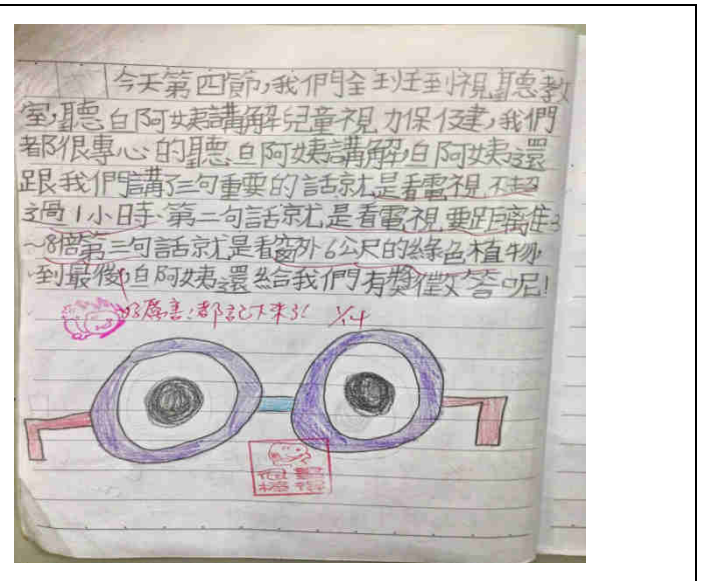 今天第四節,我們全到到視聽教
室,聽白阿姨講解兒童視力保健,我們
都很專心的聽白阿姨講解,白阿姨還
跟我們講了三句重要的話就是看電視不超
過1小時、第二句話就是看電視要距離3
~8倍第三句話就是看窗外6公尺的綠色植物,
到最後,白阿姨還給我們有獎徵答呢!
好厲害!都記下來了! 1/14